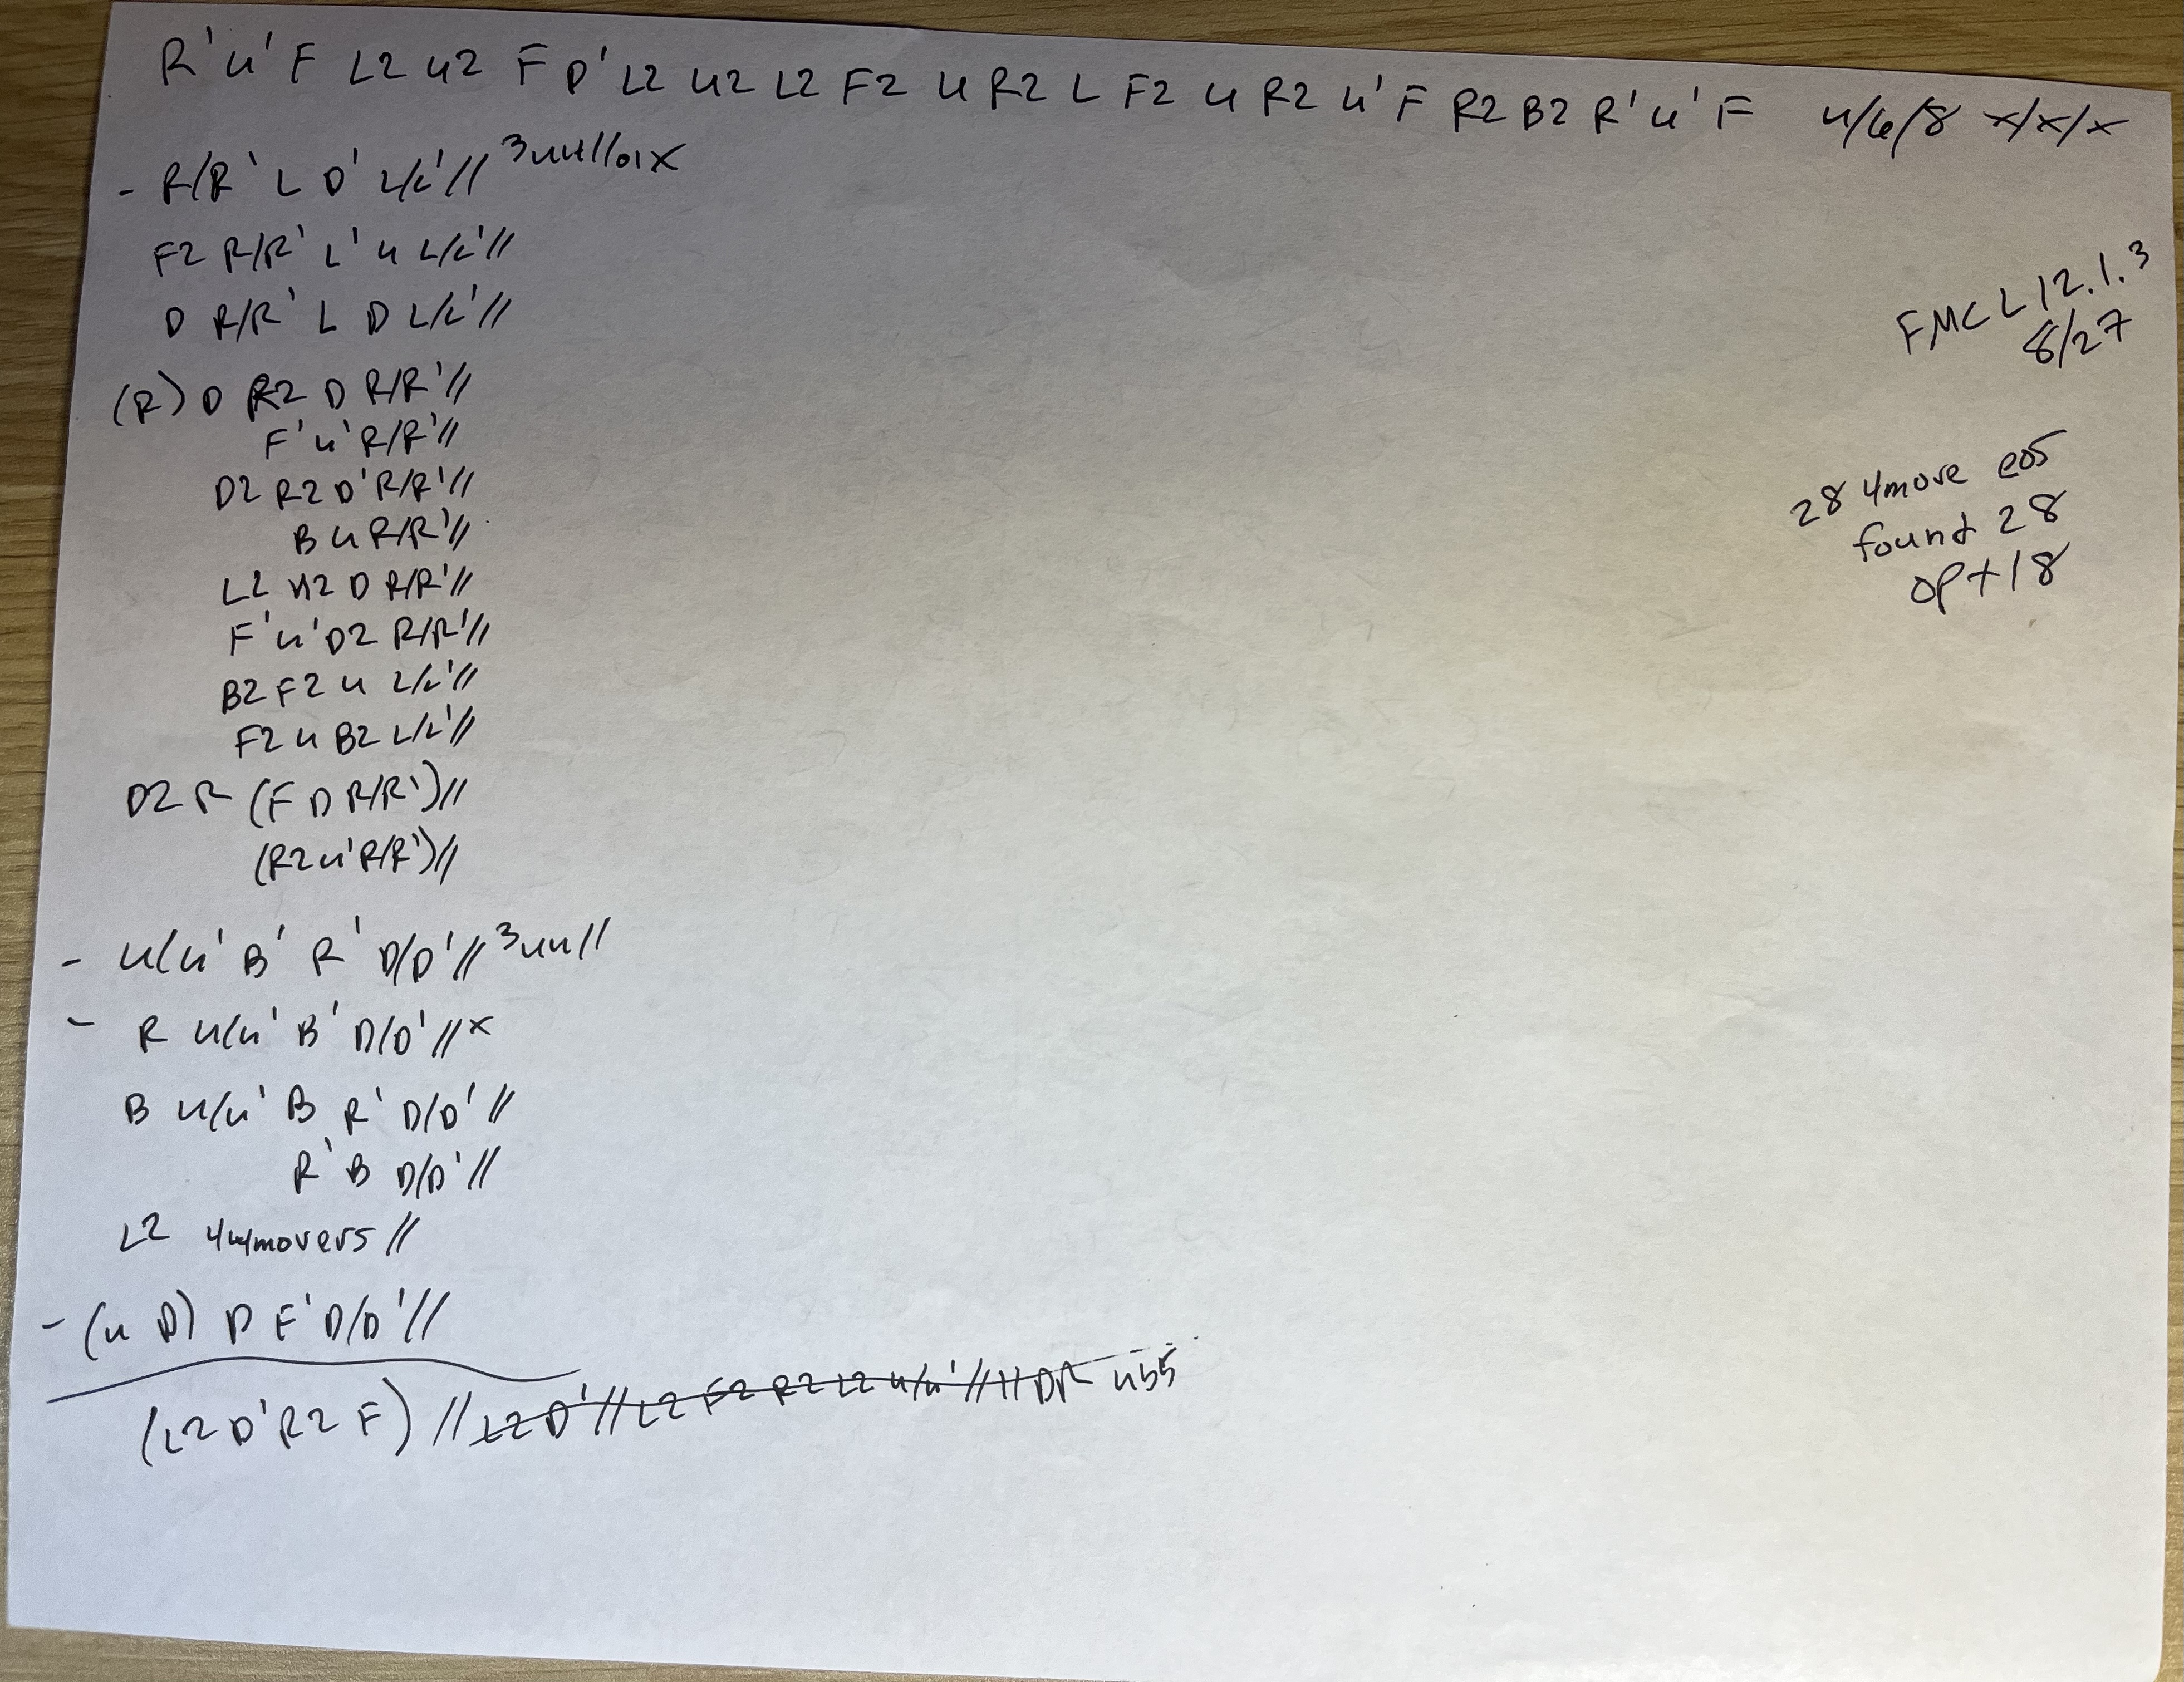 R' U' F L2 U2 F D' L2 U2 L2 F2 U R2 L F2 U R2 U' F R2 B2 R' U' F 4/6/8 x/x/x
- R/R' L D' L/L' //
F2 R/R' L' U L/L' //
D R/R' L D L/L' //
(R) D R2 D R/R' //
F' U' R/R' //
D2 R2 D' R/R' //
B U R/R' //
L2 U2 D R/R' //
F' U' D2 R/R' //
B2 F2 U L/L' //
F2 U B2 L/L' //
D2 R (F D R/R') //
(R2 U' R/R') //
- U/U' B' R' D/D' //
- R U/U' B' D/D' // x
B U/U' B R' D/D' //
R' B D/D' //
L2 movers //
- (U D) D F' D/D' //
(L2 D' R2 F) // L2 D' // L2 F2 R2 L2 U/U' // HDR 4b5
FMC L12.1.3
8/27
28 4move eos
found 28
opt 18